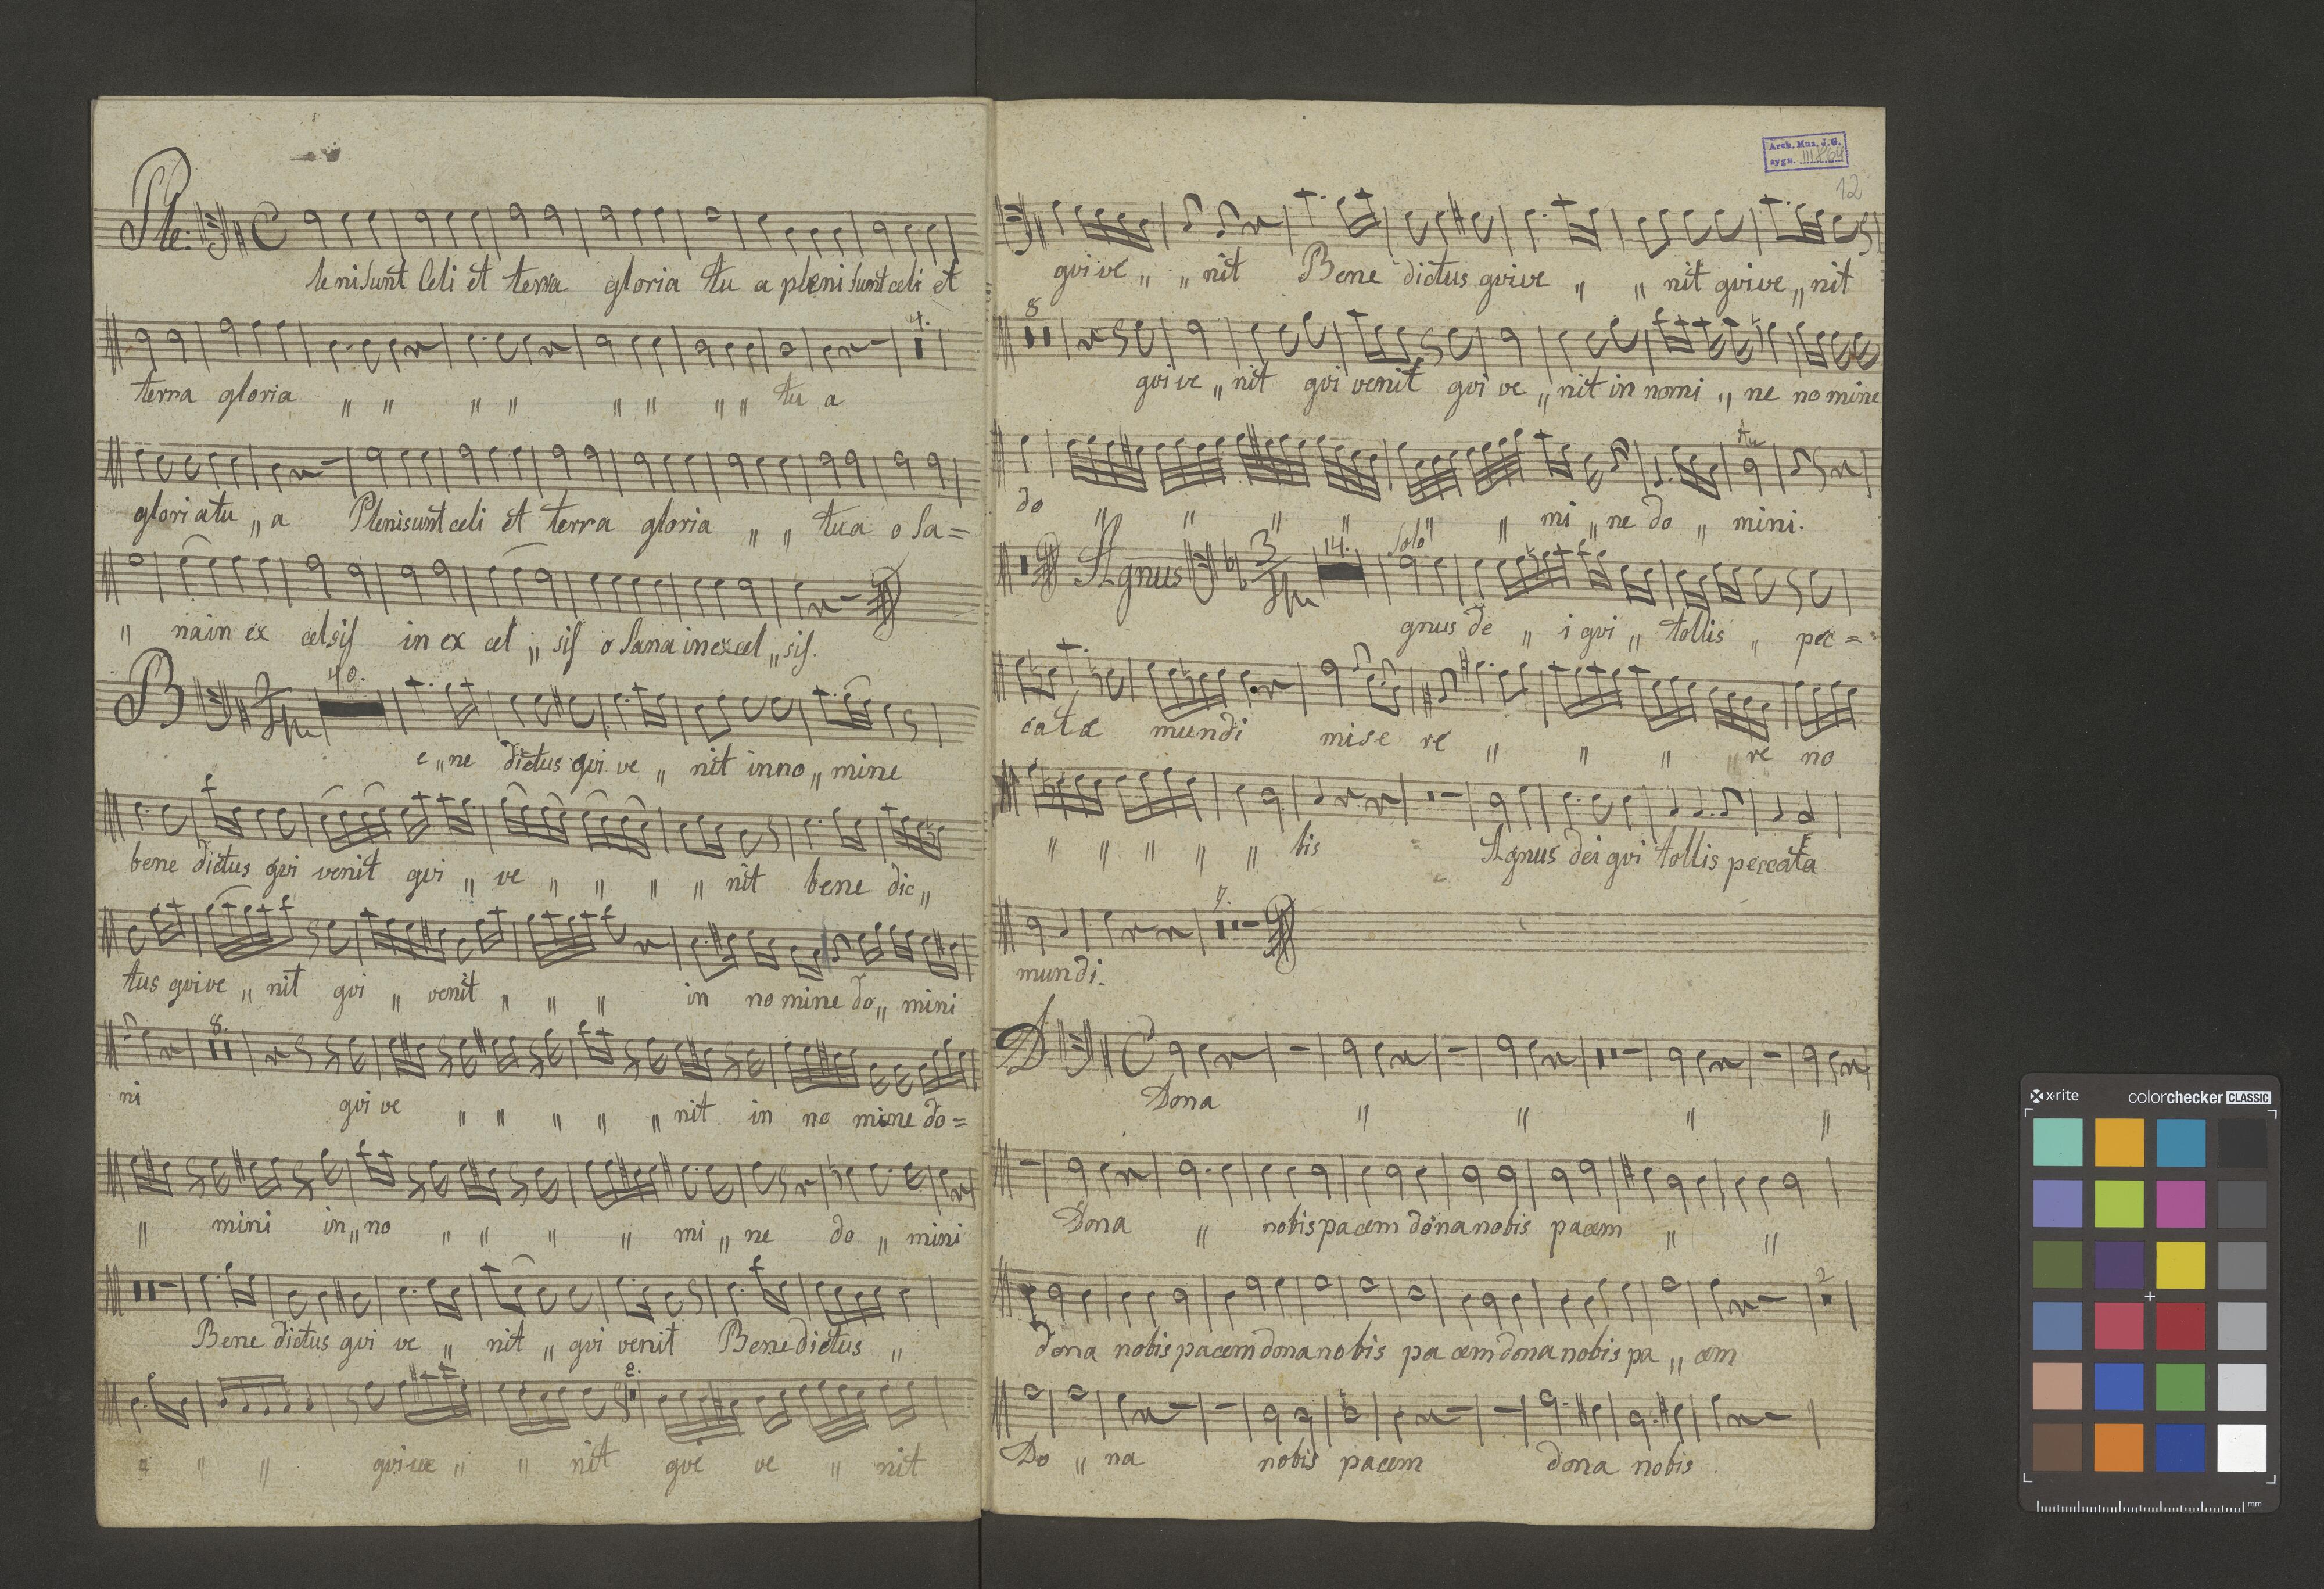 Ple:
leni sunt Celi et terra gloria tu a pleni sunt celi et
4.
terra gloria " " " " " " " " tu a
gloria tu " a Pleni sunt celi et terra gloria " " tua o Sa=
" na in ex celsis in ex cel " sis o Sana in excel " sis.
B 40.
e " ne dictus qvi ve " nit in no " mine
bene dictus qvi venit qvi " ve " " " " nit bene dic "
tus qvi ve " nit qvi " venit " " " in no mine do " mini
8.
ni qvi ve " " " " " nit in no mine do=
" mini in " no " " " " mi " ne do " mini
Bene dictus qvi ve " nit " qvi venit Benedictus "
" " " qvi ve " " nit qve ve " nit
Arch. Muz. J.G.
sygn.
12
qvi ve " " nit Bene dictus qvi ve " " nit qvi ve " nit
8
qvi ve " nit qvi venit qvi ve " nit in nomi " ne no mine
do " " " " " " mi " ne do " mini.
Agnus 3 14. Solo
gnus de " i qvi " tollis " pec=
catæ mundi mise re " " " " re no
" " " " " bis Agnus dei qvi tollis peccata
7.
mundi.
D
Dona " " " "
Dona " nobis pacem dona nobis pacem " "
2
dona nobis pacem dona nobis pa cem dona nobis pa " cem
Do " na nobis pacem dona nobis
x-rite colorchecker CLASSIC
mm